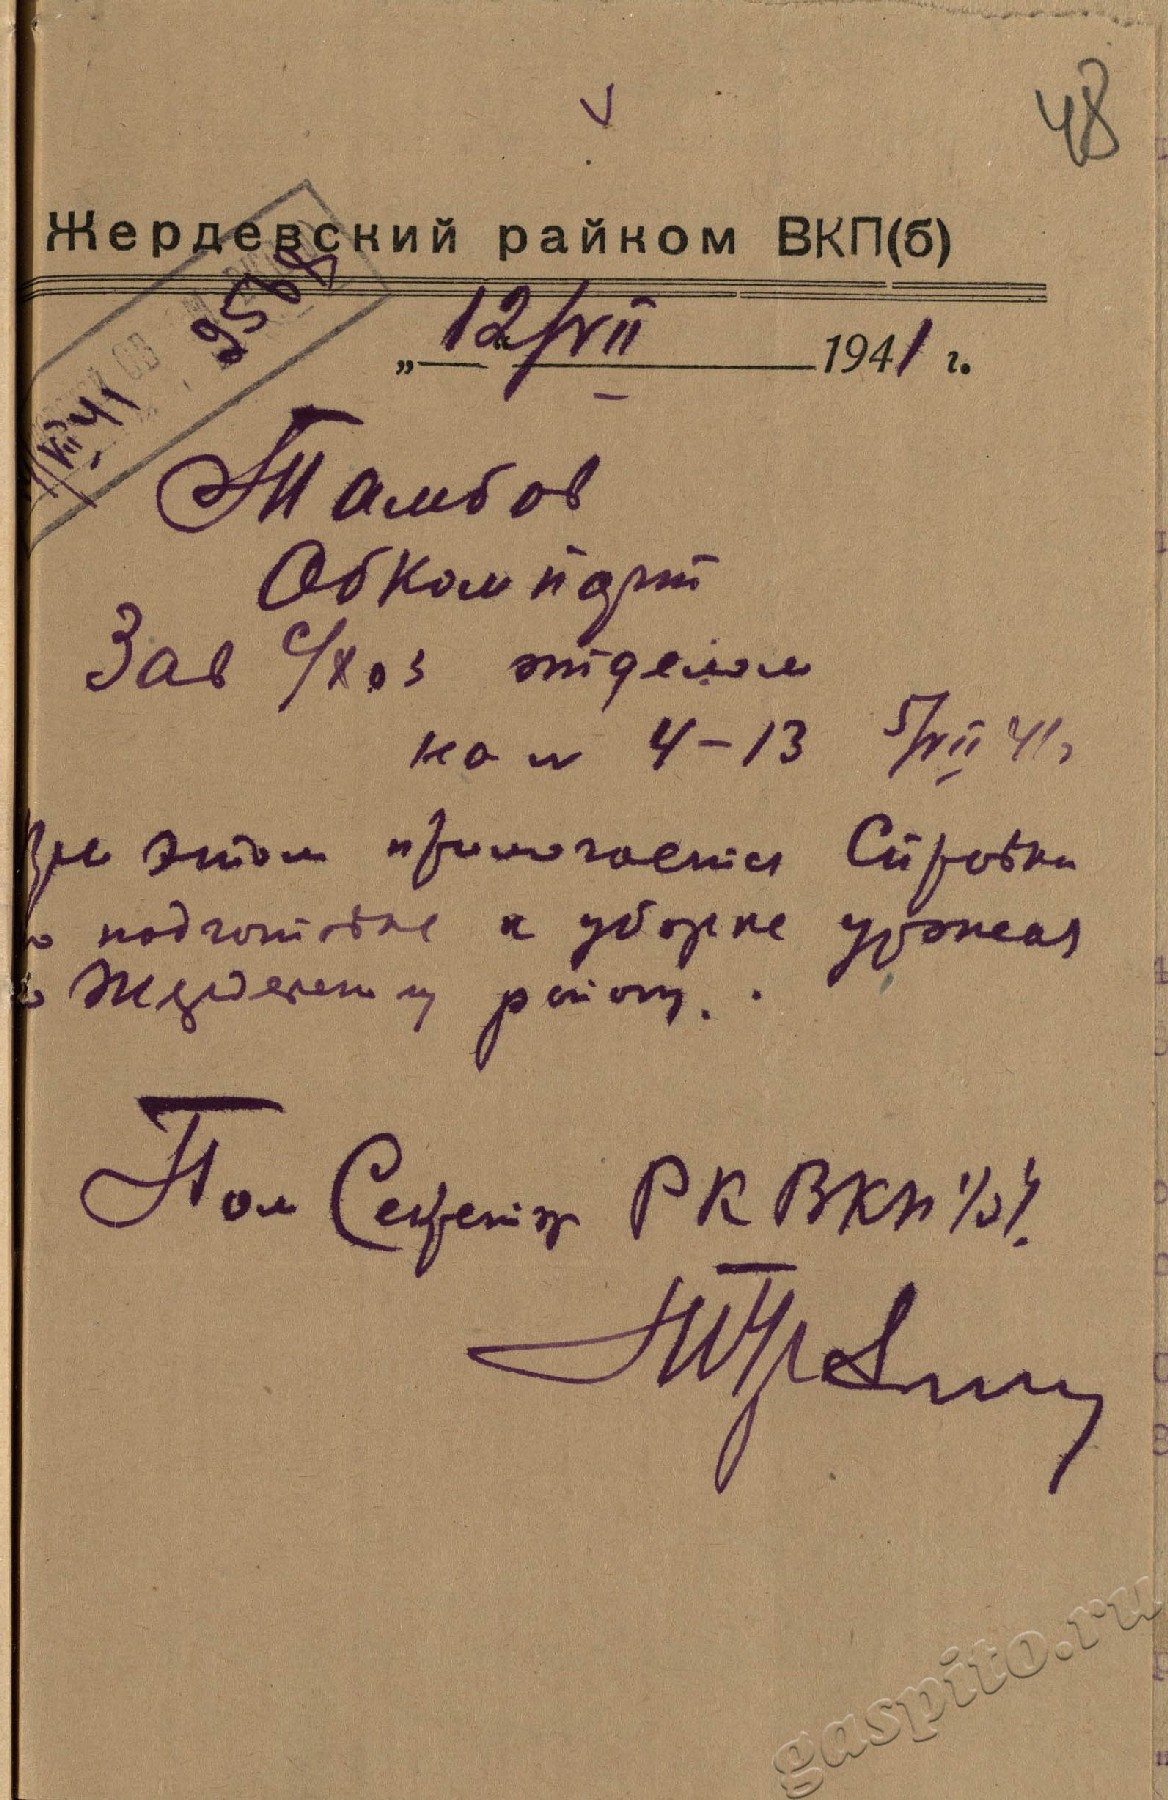 48
Жердевский райком ВКП(б)
9568
VII 41
„12/VII“ 1941 г.
Тамбов
Обком парт
Зав с/хоз отделом
на № 4-13 5/VII 41г
При этом прилагается Справка
о подготовке к уборке урожая
по Жердевскому району.
Пом Секретар РК ВКП/б/.
gaspito.ru